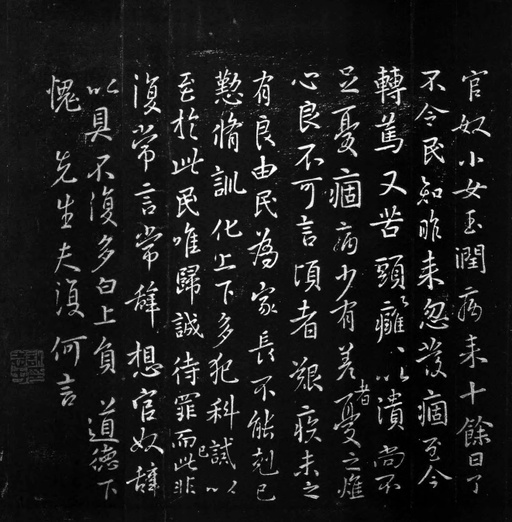 官奴小女玉潤病来十餘日了
不令民知昨来忽發痼至今
轉篤又苦頭癰〻以潰尚不
足憂痼病少有差者憂之燋
心良不可言頃者艱疾未之
有良由民為家長不能剋己
懃脩訓化上下多犯科誡以
至於此民唯歸誠待罪而已此非
復常言常辭想官奴辭
以具不復多白上負 道德下
愧 先生夫復何言